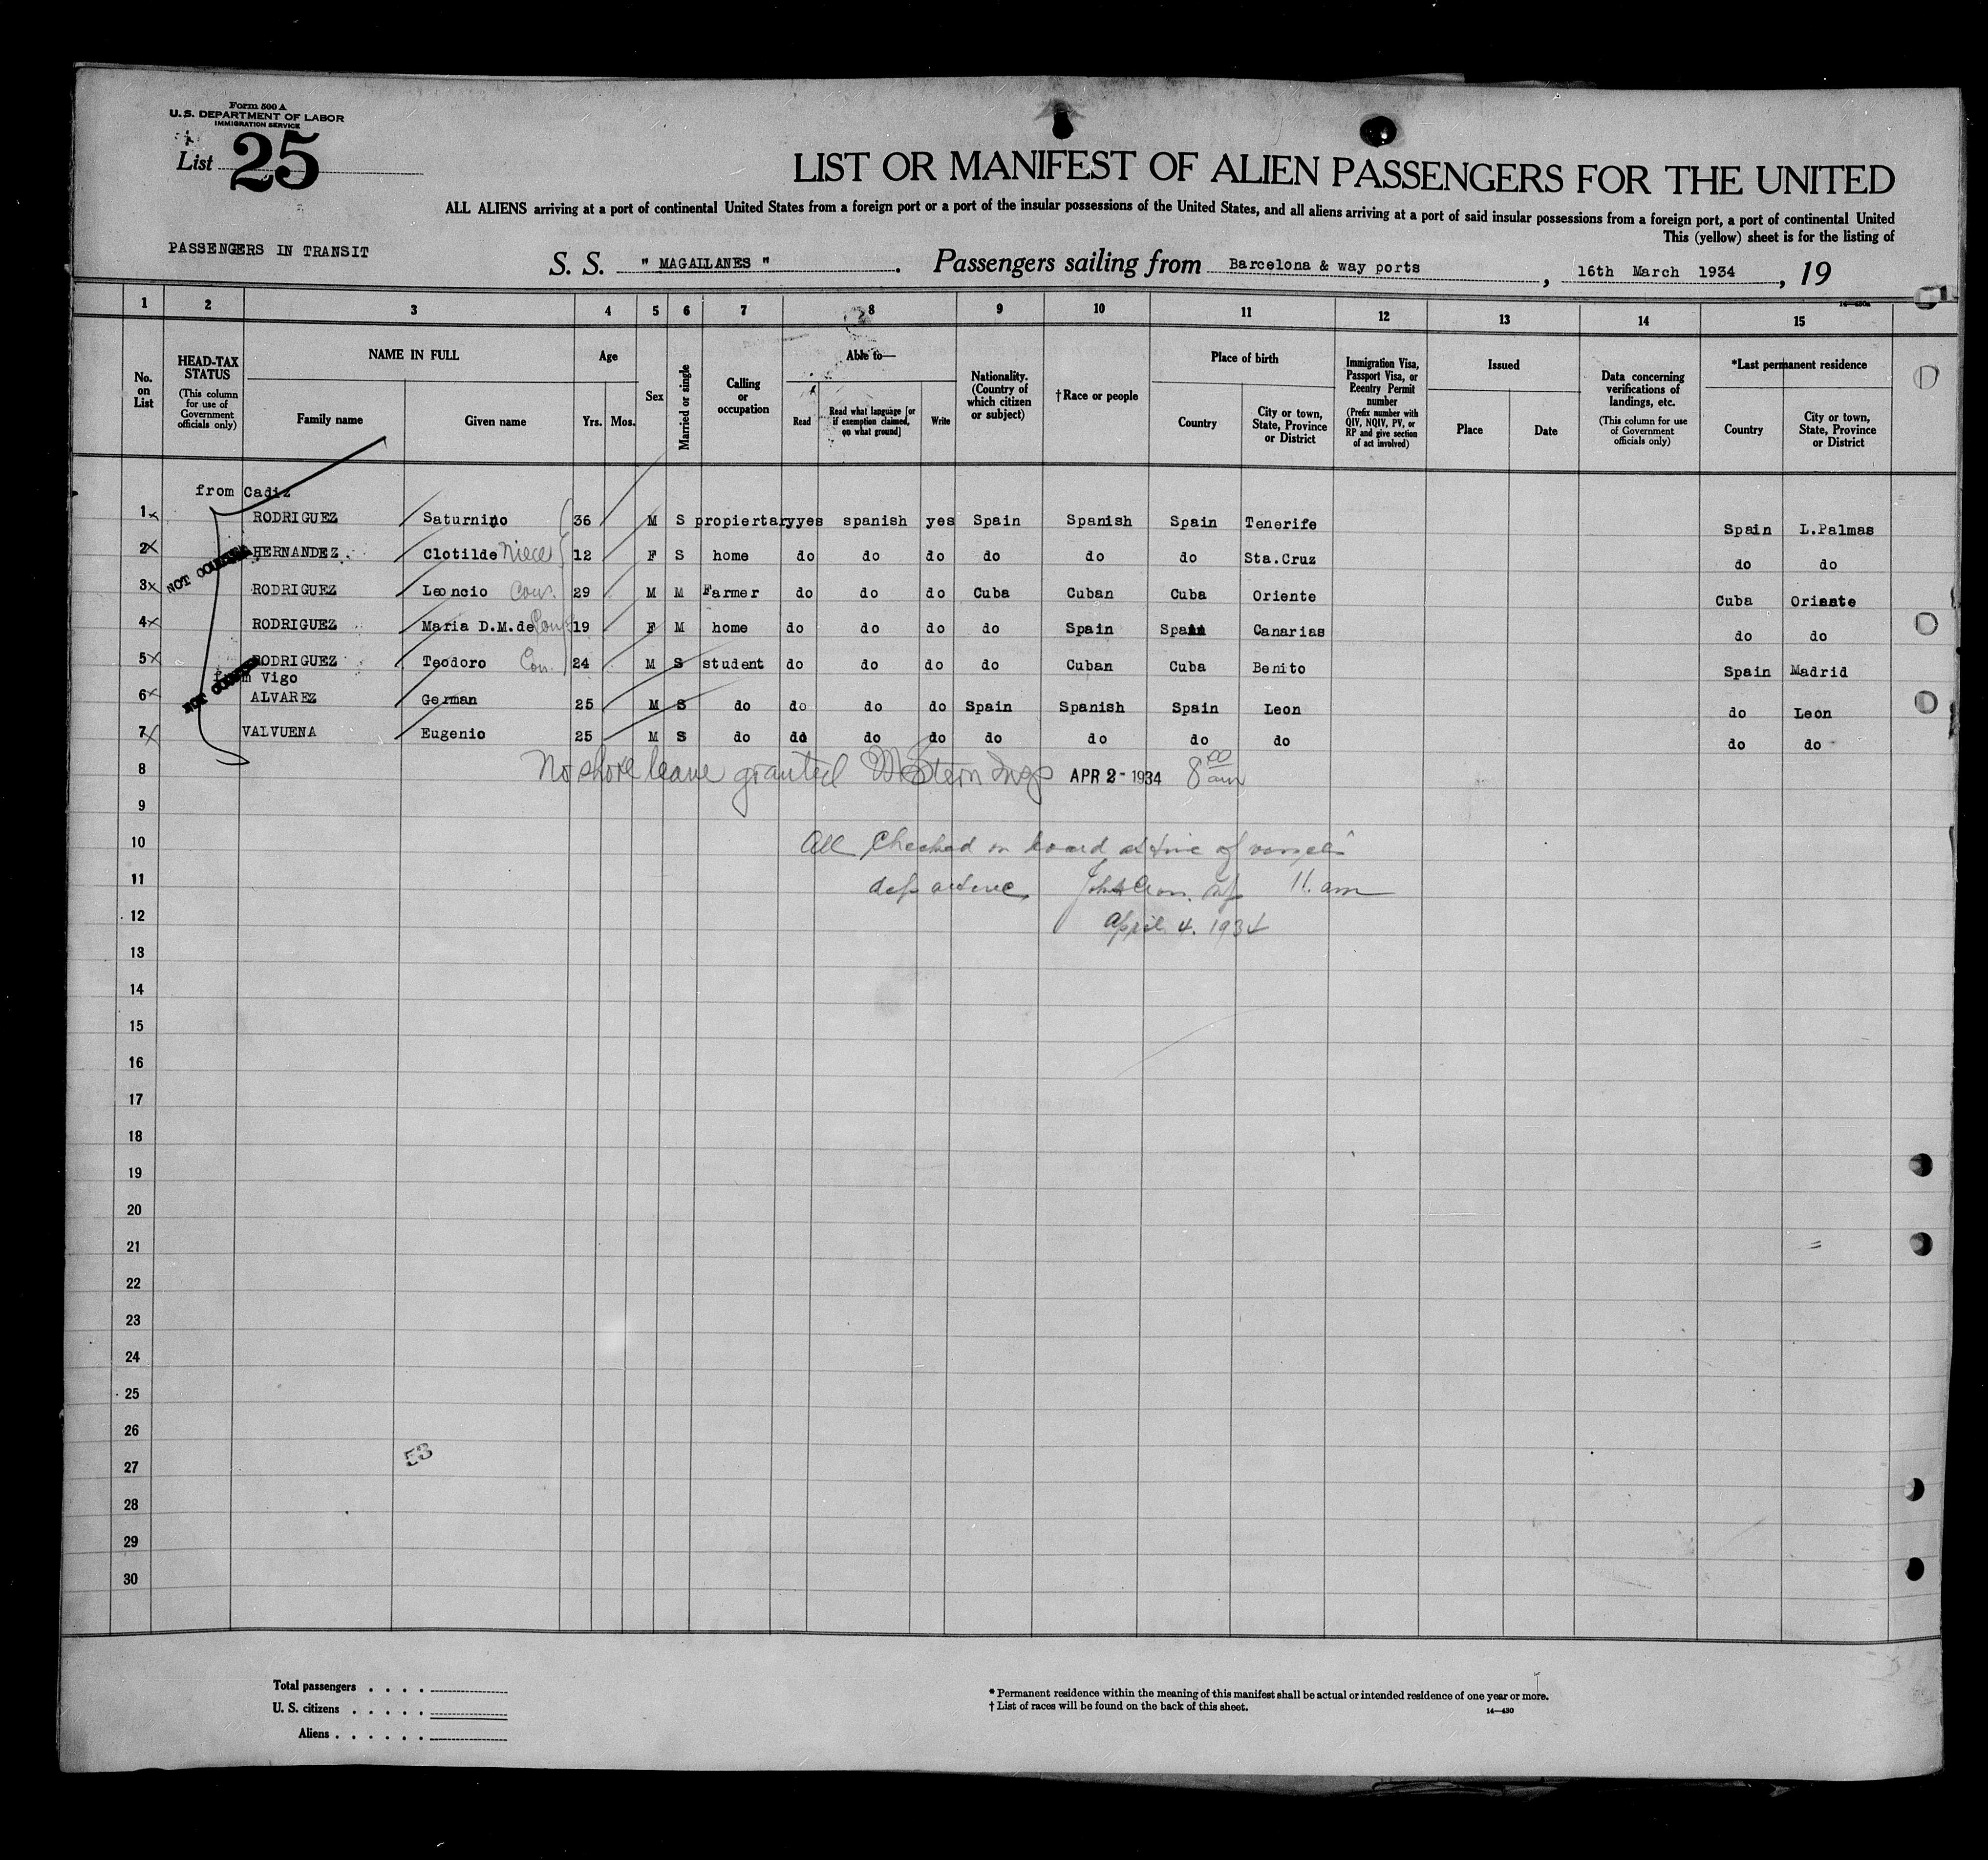 Form 500 A
U. S. DEPARTMENT OF LABOR
IMMIGRATION SERVICE
List 25
LIST OR MANIFEST OF ALIEN PASSENGERS FOR THE UNITED
ALL ALIENS arriving at a port of continental United States from a foreign port or a port of the insular possessions of the United States, and all aliens arriving at a port of said insular possessions from a foreign port, a port of continental United
This (yellow) sheet is for the listing of
PASSENGERS IN TRANSIT
S. S. " MAGALLANES ". Passengers sailing from Barcelona & way ports, 16th March 1934, 19
14—430a
1 2 3 4 5 6 7 8 9 10 11 12 13 14 15
No. on List
HEAD-TAX STATUS
(This column for use of Government officials only)
NAME IN FULL
Family name
Given name
Age
Yrs. Mos.
Sex
Married or single
Calling or occupation
Able to—
Read
Read what language [or if exemption claimed, on what ground]
Write
Nationality. (Country of which citizen or subject)
†Race or people
Place of birth
Country
City or town, State, Province or District
Immigration Visa, Passport Visa, or Reentry Permit number
(Prefix number with QIV, NQIV, PV, or RP and give section of act involved)
Issued
Place
Date
Data concerning verifications of landings, etc.
(This column for use of Government officials only)
*Last permanent residence
Country
City or town, State, Province or District
from Cadiz
1 x RODRIGUEZ Saturnino 36 M S propiertary yes spanish yes Spain Spanish Spain Tenerife Spain L.Palmas
2 x HERNANDEZ Clotilde Niece 12 F S home do do do do do do Sta.Cruz do do
NOT COUNTED
3 x RODRIGUEZ Leoncio Cous. 29 M M Farmer do do do Cuba Cuban Cuba Oriente Cuba Oriente
4 x RODRIGUEZ Maria D.M.de Cous 19 F M home do do do do Spain Spain Canarias do do
5 x RODRIGUEZ Teodoro Cou. 24 M S student do do do do Cuban Cuba Benito Spain Madrid
from Vigo
NOT COUNTED
6 x ALVAREZ German 25 M S do do do do Spain Spanish Spain Leon do Leon
7 x VALVUENA Eugenio 25 M S do do do do do do do do do do
8 No shore leave granted APR 2 - 1934 8 00 am
9
10 All Checked on board at time of vessel's
11 departure 11. am
12 April 4. 1934
13
14
15
16
17
18
19
20
21
22
23
24
25
26
53
27
28
29
30
Total passengers . . . .
U. S. citizens . . . . .
Aliens . . . . . .
* Permanent residence within the meaning of this manifest shall be actual or intended residence of one year or more.
† List of races will be found on the back of this sheet.
14—430